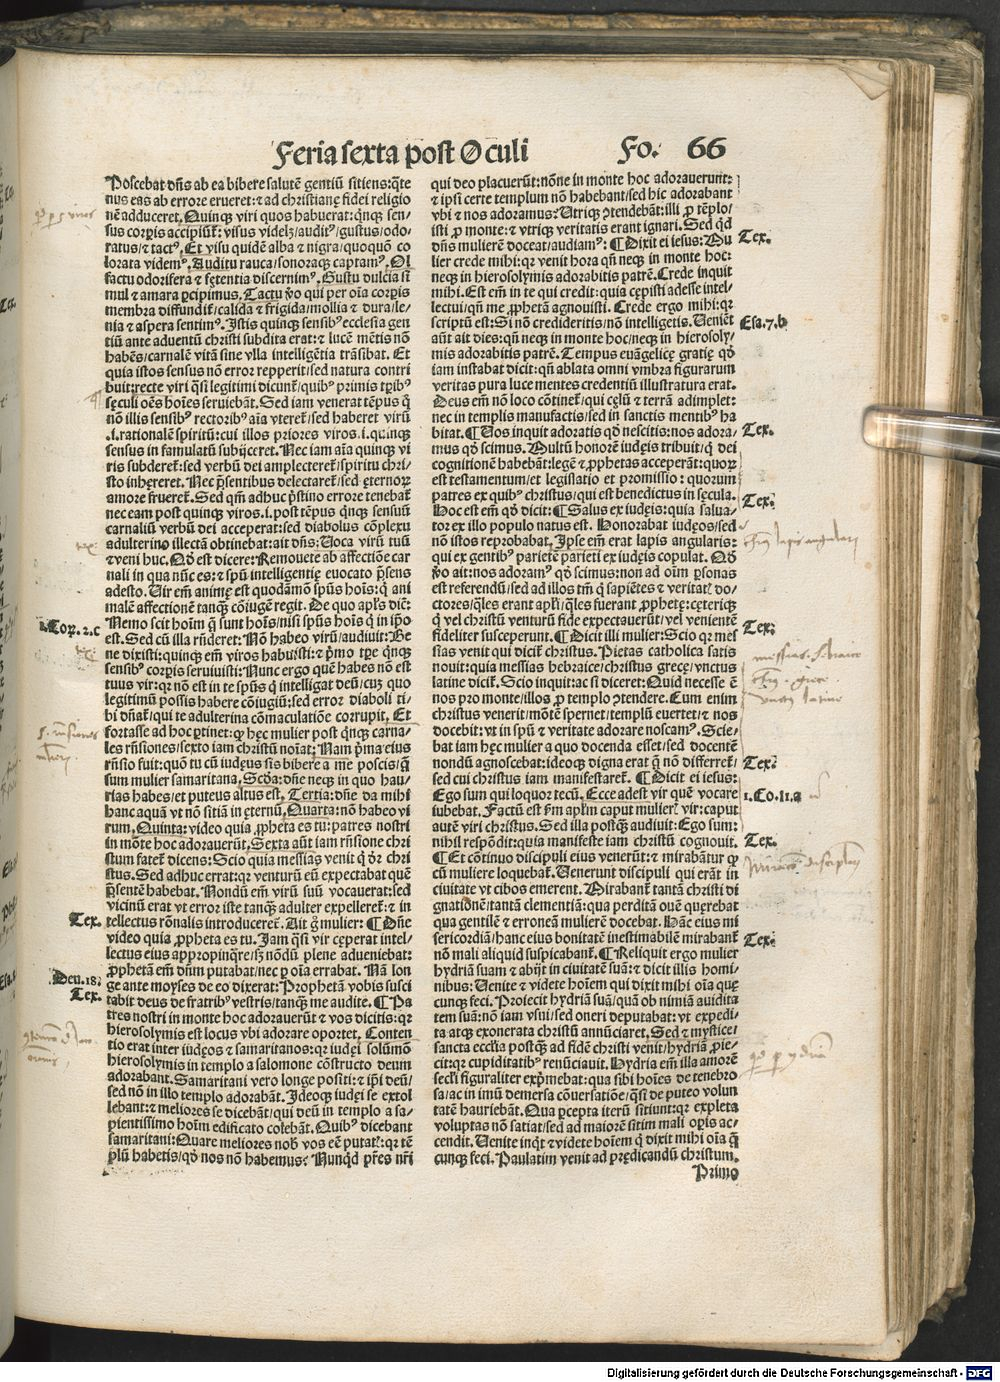 Feria sexta post Oculi Fo. 66
Poscebat dñs ab ea bibere salutē gentiū sitiens:q̃te
nus eas ab errore erueret: ⁊ ad christianę fidei religio
nē adduceret. Quinqꝫ viri quos habuerat: q̃nqꝫ sen-
sus corꝑis accipiūt᷑: visus videlꝫ/auditꝰ/gustus/odo-
ratus/⁊ tactꝰ. Et visu quidē alba ⁊ nigra/quoquō co
lorata videmꝰ. Auditu rauca/sonoraqꝫ captamꝰ. Ol
factu odorifera ⁊ fętentia discernimꝰ. Gustu dulcia sī
mul ⁊ amara ꝑcipimus. Tactu ꝟo qui per oīa corꝑis
membra diffundit᷑/calida ⁊ frigida/mollia ⁊ dura/le/
nia ⁊ aspera sentimꝰ. Istis quinqꝫ sensibꝰ ecclesia gen
tiū ante aduentū christi subdita erat: ⁊ lucē mētis nō
habēs/carnalē vitā sine vlla intelligētia trāsibat. Et
quia istos sensus nō error repperit/sed natura contri
buit: recte viri q̃si legitimi dicunt᷑/quibꝰ primis tꝑibꝰ
sęculi oēs hoīes seruiebāt. Sed iam venerat tēpus q̃
nō illis sensibꝰ rectoribꝰ aīa vteret᷑/sed haberet virū
.i. rationalē spiritū: cui illos priores viros .i. quinqꝫ
sensus in famulatū subijceret. Nec iam aīa quinqꝫ vi
ris subderet᷑: sed verbū dei amplecteret᷑/spiritu chri/
sto inhęreret. Nec p̃sentibus delectaret᷑/sed ęternoꝝ
amore frueret᷑. Sed qm̄ adhuc p̃stino errore tenebat᷑
nec eam post quinqꝫ viros .i. post tēpus q̃nqꝫ sensuū
carnaliū verbū dei acceperat: sed diabolus cōplexu
adulterino illectā obtinebat: ait dñs: Uoca virū tuū
⁊ veni huc. Qḋ est dicere: Remouete ab affectiōe car
nali in qua nūc es: ⁊ spū intelligentię euocato p̃sens
adesto. Uir em̄ animę est quodāmō spūs hoīs: q̃ ani
malē affectionē tanqꝫ cōiugē regit. De quo apl̄s dic̄:
Nemo scit hoīm q̃ sunt hoīs/nisi spūs hoīs q̃ in ip̄o
est. Sed cū illa rn̄deret: Nō habeo virū/audiuit: Be
ne dixisti: quinqꝫ em̄ viros habuisti: ⁊ p̄mo tꝑe q̃nqꝫ
sensibꝰ corꝑis seruiuisti: Nunc ergo quē habes nō est
tuus vir: qꝛ nō est in te spūs q̃ intelligat deū/cuꝫ quo
legitimū possis habere cōiugiū: sed error diaboli ti-
bi dñat᷑/qui te adulterina cōmaculatiōe corrupit. Et
fortasse ad hoc ꝑtinet: ꝙ hęc mulier post q̃nqꝫ carna/
les rn̄siones/sexto iam christū noīat: Nam p̄ma eius
rn̄sio fuit: quō tu cū iudęus sis bibere a me poscis/q̃
sum mulier samaritana. Scḋa: dñe neqꝫ in quo hau/
rias habes/et puteus altus est. Tertia: dñe da mihi
hanc aquā vt nō sitiā in ęternū. Quarta: nō habeo vi
rum. Quinta: video quia ꝓpheta es tu: patres nostri
in mōte hoc adorauerūt. Sexta aūt iam rn̄sione chri
stum fatet᷑ dicens: Scio quia messias venit q̃ dr̄ chri
stus. Sed adhuc errat: qꝛ venturū eū expectabat quē
p̃sentē habebat. Nondū em̄ virū suū vocauerat: sed
vicinū erat vt error iste tanqꝫ adulter expelleret᷑: ⁊ in
tellectus rōnalis introduceret᷑. Ait g̊ mulier: ¶ Dñe
video quia ꝓpheta es tu. Jam q̃si vir cęperat intel/
lectus eius appropinq̃re/sꝫ nōdū plene adueniebat:
ꝓphetā em̄ dn̄m putabat/nec ꝑ oīa errabat. Nā lon
ge ante moyses de eo dixerat: Prophetā vobis susci
tabit deus de fratribꝰ vestris/tanqꝫ me audite. ¶ Pa
tres nostri in monte hoc adorauerūt ⁊ vos dicitis: qꝛ
hierosolymis est locus vbi adorare oportet. Conten
tio erat inter iudęos ⁊ samaritanos: qꝛ iudęi solūmō
hierosolymis in templo a salomone cōstructo deum
adorabant. Samaritani vero longe positi: ⁊ ip̄i deū/
sed nō in illo templo adorabāt. Ideoqꝫ iudęi se extol
lebant: ⁊ meliores se dicebāt/qui deū in templo a sa-
pientissimo hoīm edificato colebāt. Quibꝰ dicebant
samaritani: Quare meliores nob̄ vos eē putat᷑: qꝛ tē
plū habetis/qḋ nos nō habemus? Nunqḋ p̄res nr̄i
qui deo placuerūt: nōne in monte hoc adorauerunt:
⁊ ip̄i certe templum nō habebant/sed hic adorabant
vbi ⁊ nos adoramus? Utriqꝫ ꝯtendebāt: illi ꝓ tēplo/
isti ꝓ monte: ⁊ vtriqꝫ veritatis erant ignari. Sed qḋ
dñs mulierē doceat/audiamꝰ: ¶ Dixit ei iesus: Mu
lier crede mihi: qꝛ venit hora qn̄ neqꝫ in monte hoc:
neqꝫ in hierosolymis adorabitis patrē. Crede inquit
mihi. Est em̄ in te qui credit: quia cępisti adesse intel-
lectui/qn̄ me ꝓphetā agnouisti. Crede ergo mihi: qꝛ
scriptū est: Si nō credideritis/nō intelligetis. Ueniet
aūt ait dies: qn̄ neqꝫ in monte hoc/neqꝫ in hierosoly/
mis adorabitis patrē. Tempus euāgelicę gratię qḋ
iam instabat dicit: qn̄ ablata omni vmbra figurarum
veritas pura luce mentes credentiū illustratura erat.
Deus em̄ nō loco cōtinet᷑/qui cęlū ⁊ terrā adimplet:
nec in templis manufactis/sed in sanctis mentibꝰ ha
bitat. ¶ Uos inquit adoratis qḋ nescitis: nos adora/
mus qḋ scimus. Multū honorē iudęis tribuit/q̃ dei
cognitionē habebāt: legē ⁊ ꝓphetas acceperāt: quoꝝ
est testamentum/et legislatio et promissio: quorum
patres ex quibꝰ christus/qui est benedictus in sęcula.
Hoc est em̄ qḋ dicit: ¶ Salus ex iudęis: quia salua/
tor ex illo populo natus est. Honorabat iudęos/sed
nō istos reprobabat. Ipse em̄ erat lapis angularis:
qui ex gentibꝰ parietē parieti ex iudęis copulat. Qḋ
ꝟo ait: nos adoramꝰ qḋ scimus: non ad oīm ꝑsonas
est referendū/sed ad illos tm̄ q̃ sapiētes ⁊ veritat᷑ do/
ctores/q̃les erant apl̄i/q̃les fuerant ꝓphetę: cęteriqꝫ
q̃ vel christū venturū fide expectauerūt/vel venientē
fideliter susceperunt. ¶ Dicit illi mulier: Scio qꝛ mes
sias venit qui dicit᷑ christus. Pietas catholica satis
nouit: quia messias hebraice/christus gręce/vnctus
latine dicit᷑. Scio inquit: ac si diceret: Quid necesse ē
nos pro monte/illos ꝓ templo ꝯtendere. Cum enim
christus venerit/mōtē spernet/templū euertet/⁊ nos
docebit: vt in spū ⁊ veritate adorare noscamꝰ. Scie-
bat iam hęc mulier a quo docenda esset/sed docentē
nondū agnoscebat: ideoqꝫ digna erat q̃ nō differret᷑/
sed cui christus iam manifestaret᷑. ¶ Dicit ei iesus:
Ego sum qui loquor tecū. Ecce adest vir quē vocare
iubebat. Factū est ꝟm apl̄m caput mulier᷑ vir: caput
autē viri christus. Sed illa postqꝫ audiuit: Ego sum:
nihil respōdit: quia manifeste iam christū cognouit.
¶ Et cōtinuo discipuli eius venerūt: ⁊ mirabāt᷑ ꝙ
cū muliere loquebat᷑. Uenerunt discipuli qui erāt in
ciuitate vt cibos emerent. Mirabant᷑ tantā christi di
gnationē/tantā clementiā: qua perdita ouē quęrebat
qua gentilē ⁊ erroneā mulierē docebat. Hāc eius mi
sericordiā/hanc eius bonitatē inestimabilē mirabant᷑
nō mali aliquid suspicabant᷑. ¶ Reliquit ergo mulier
hydriā suam ⁊ abijt in ciuitatē suā: ⁊ dicit illis homi/
nibus: Uenite ⁊ videte hoīem qui dixit mihi oīa quę
cunqꝫ feci. Proiecit hydriā suā/quā ob nimiā auidita
tem suā: nō iam vsui/sed oneri deputabat: vt expedi/
ta atqꝫ exonerata christū annūciaret. Sed ⁊ mystice/
sancta ecclīa postqꝫ ad fidē christi venit/hydriā ꝓie-
cit: qꝛ cupiditatibꝰ renūciauit. Hydria em̄ illa amorē
secl̄i figuraliter exp̄mebat: qua sibi hoīes de tenebro
sa/ac in imū demersa cōuersatiōe/q̃si de puteo volun
tatē hauriebāt. Qua ꝑcepta iterū sitiunt: qꝛ expleta
voluptas nō satiat/sed ad maiorē sitim mali oꝑis ac/
cendit. Uenite inq̇t ⁊ videte hoīem q̃ dixit mihi oīa q̃
cunqꝫ feci. Paulatim venit ad prędicandū christum.
Primo
1. Coꝝ. 2. c
Tex.
Deu. 18.
Tex.
Tex.
Esa. 7. b
Tex.
Tex.
Tex.
Tex.
1. Co. 11. a
Tex.
Tex.
Digitalisierung gefördert durch die Deutsche Forschungsgemeinschaft - DFG